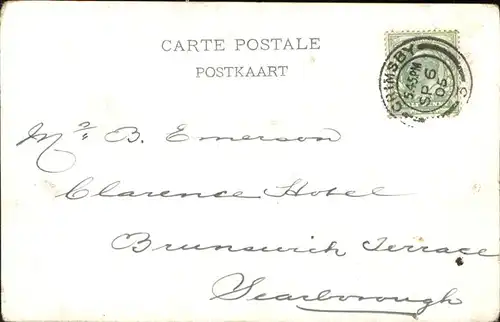 CARTE POSTALE
POSTKAART
GRIMSBY
5.45PM
SP 6
05
Mr B. Emerson
Clarence Hotel
Brunswick Terrace
Scarborough